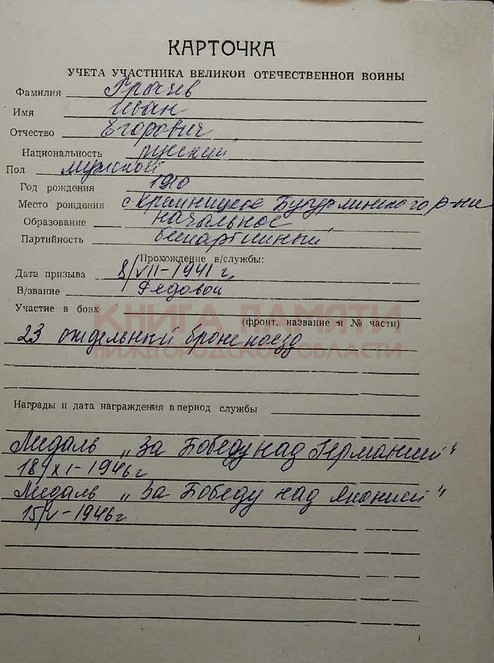 КАРТОЧКА
УЧЕТА УЧАСТНИКА ВЕЛИКОЙ ОТЕЧЕСТВЕННОЙ ВОЙНЫ
Фамилия Грачев
Имя Иван
Отчество Егорович
Национальность русский
Пол мужской
Год рождения 1910
Место рождения с Бутурлинского р-на
Образование начальное
Партийность беспартийный
Прохождение в/службы:
Дата призыва 8/VII-1941 г.
В/звание Рядовой
КНИГА ПАМЯТИ
Участие в боях
(фронт, название и № части)
23 отдельный бронепоезд
НИЖЕГОРОДСКОЙ ОБЛАСТИ
Награды и дата награждения в период службы
Медаль „За Победу над Германией"
18/XI-1946г
Медаль „За Победу над Японией"
15/V-1946г